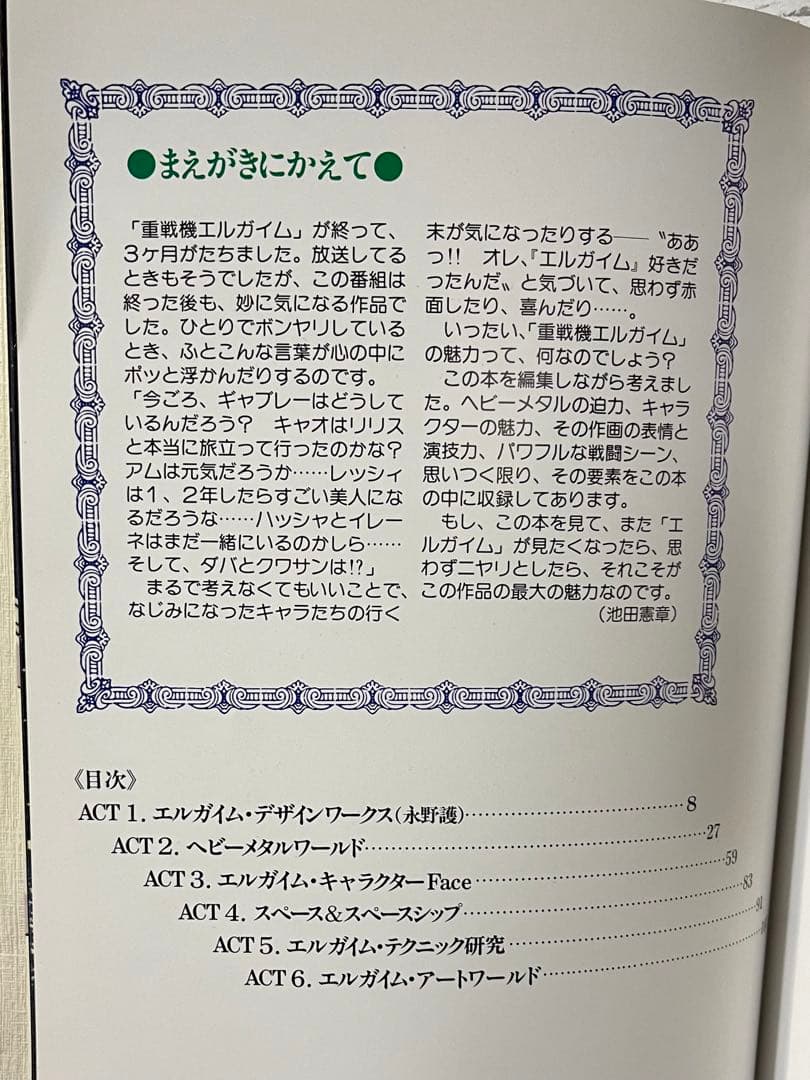 ●まえがきにかえて●
「重戦機エルガイム」が終って、
3ヶ月がたちました。放送してる
ときもそうでしたが、この番組は
終った後も、妙に気になる作品で
した。ひとりでボンヤリしている
とき、ふとこんな言葉が心の中に
ポッと浮かんだりするのです。
「今ごろ、ギャブレーはどうして
いるんだろう？　キャオはリリス
と本当に旅立って行ったのかな？
アムは元気だろうか……レッシィ
は1、2年したらすごい美人にな
るだろうな……ハッシャとイレー
ネはまだ一緒にいるのかしら……
そして、ダバとクワサンは!?」
　まるで考えなくてもいいことで、
なじみになったキャラたちの行く
末が気になったりする──〝ああ
っ!!　オレ、『エルガイム』好きだ
ったんだ〟と気づいて、思わず赤
面したり、喜んだり……。
　いったい、「重戦機エルガイム」
の魅力って、何なのでしょう？
　この本を編集しながら考えまし
た。ヘビーメタルの迫力、キャラ
クターの魅力、その作画の表情と
演技力、パワフルな戦闘シーン、
思いつく限り、その要素をこの本
の中に収録してあります。
　もし、この本を見て、また「エ
ルガイム」が見たくなったら、思
わずニヤリとしたら、それこそが
この作品の最大の魅力なのです。
（池田憲章）
《目次》
ACT 1. エルガイム・デザインワークス(永野護)……………………………8
ACT 2. ヘビーメタルワールド……………………………27
ACT 3. エルガイム・キャラクターFace……………………………59
ACT 4. スペース&スペースシップ……………………………83
ACT 5. エルガイム・テクニック研究……………………………91
ACT 6. エルガイム・アートワールド……………………………